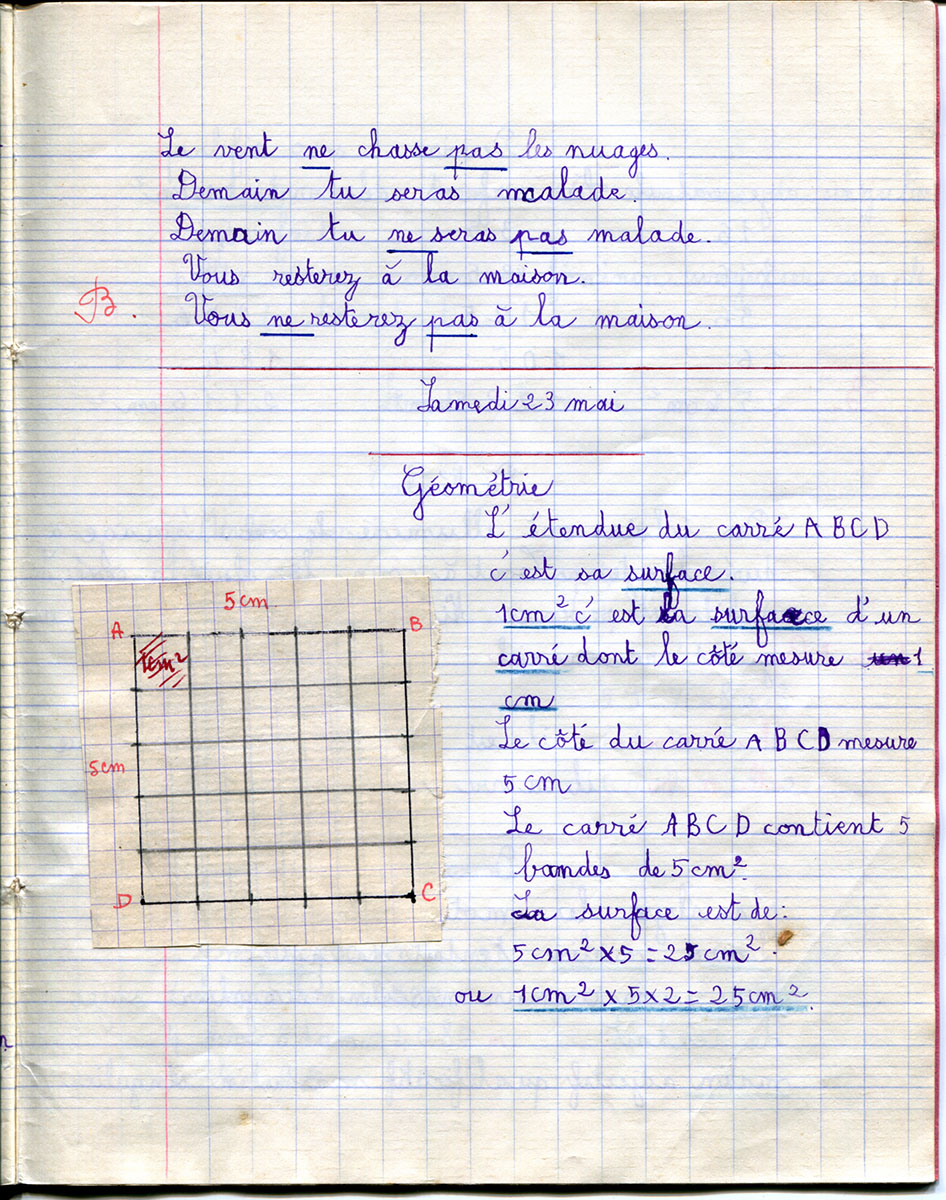 Le vent ne chasse pas les nuages.
Demain tu seras malade.
Demain tu ne seras pas malade.
Vous resterez à la maison.
B.
Vous ne resterez pas à la maison.
Samedi 23 mai
Géométrie
L'étendue du carré ABCD
c'est sa surface.
1cm² c'est la surface d'un
carré dont le côté mesure 1
cm
Le côté du carré ABCD mesure
5 cm
Le carré ABCD contient 5
bandes de 5cm².
La surface est de:
5cm² x 5 = 25 cm².
ou 1cm² x 5 x 2 = 25cm².
5cm
A
B
1cm²
5cm
D
C